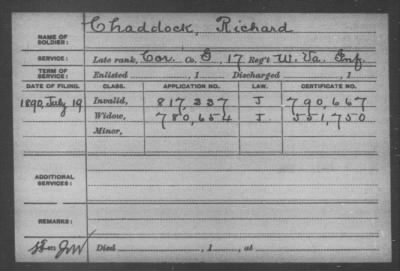 NAME OF SOLDIER: Chaddock, Richard
SERVICE: Late rank, Cor. Co. G, 17 Reg't W. Va. Inf.
TERM OF SERVICE: Enlisted , 1 Discharged , 1
DATE OF FILING. CLASS. APPLICATION NO. LAW. CERTIFICATE NO.
1890, July 19 Invalid, 817,337 J 790,667
Widow, 780,654 J 551,750
Minor,
ADDITIONAL SERVICES:
REMARKS:
Died , 1 , at